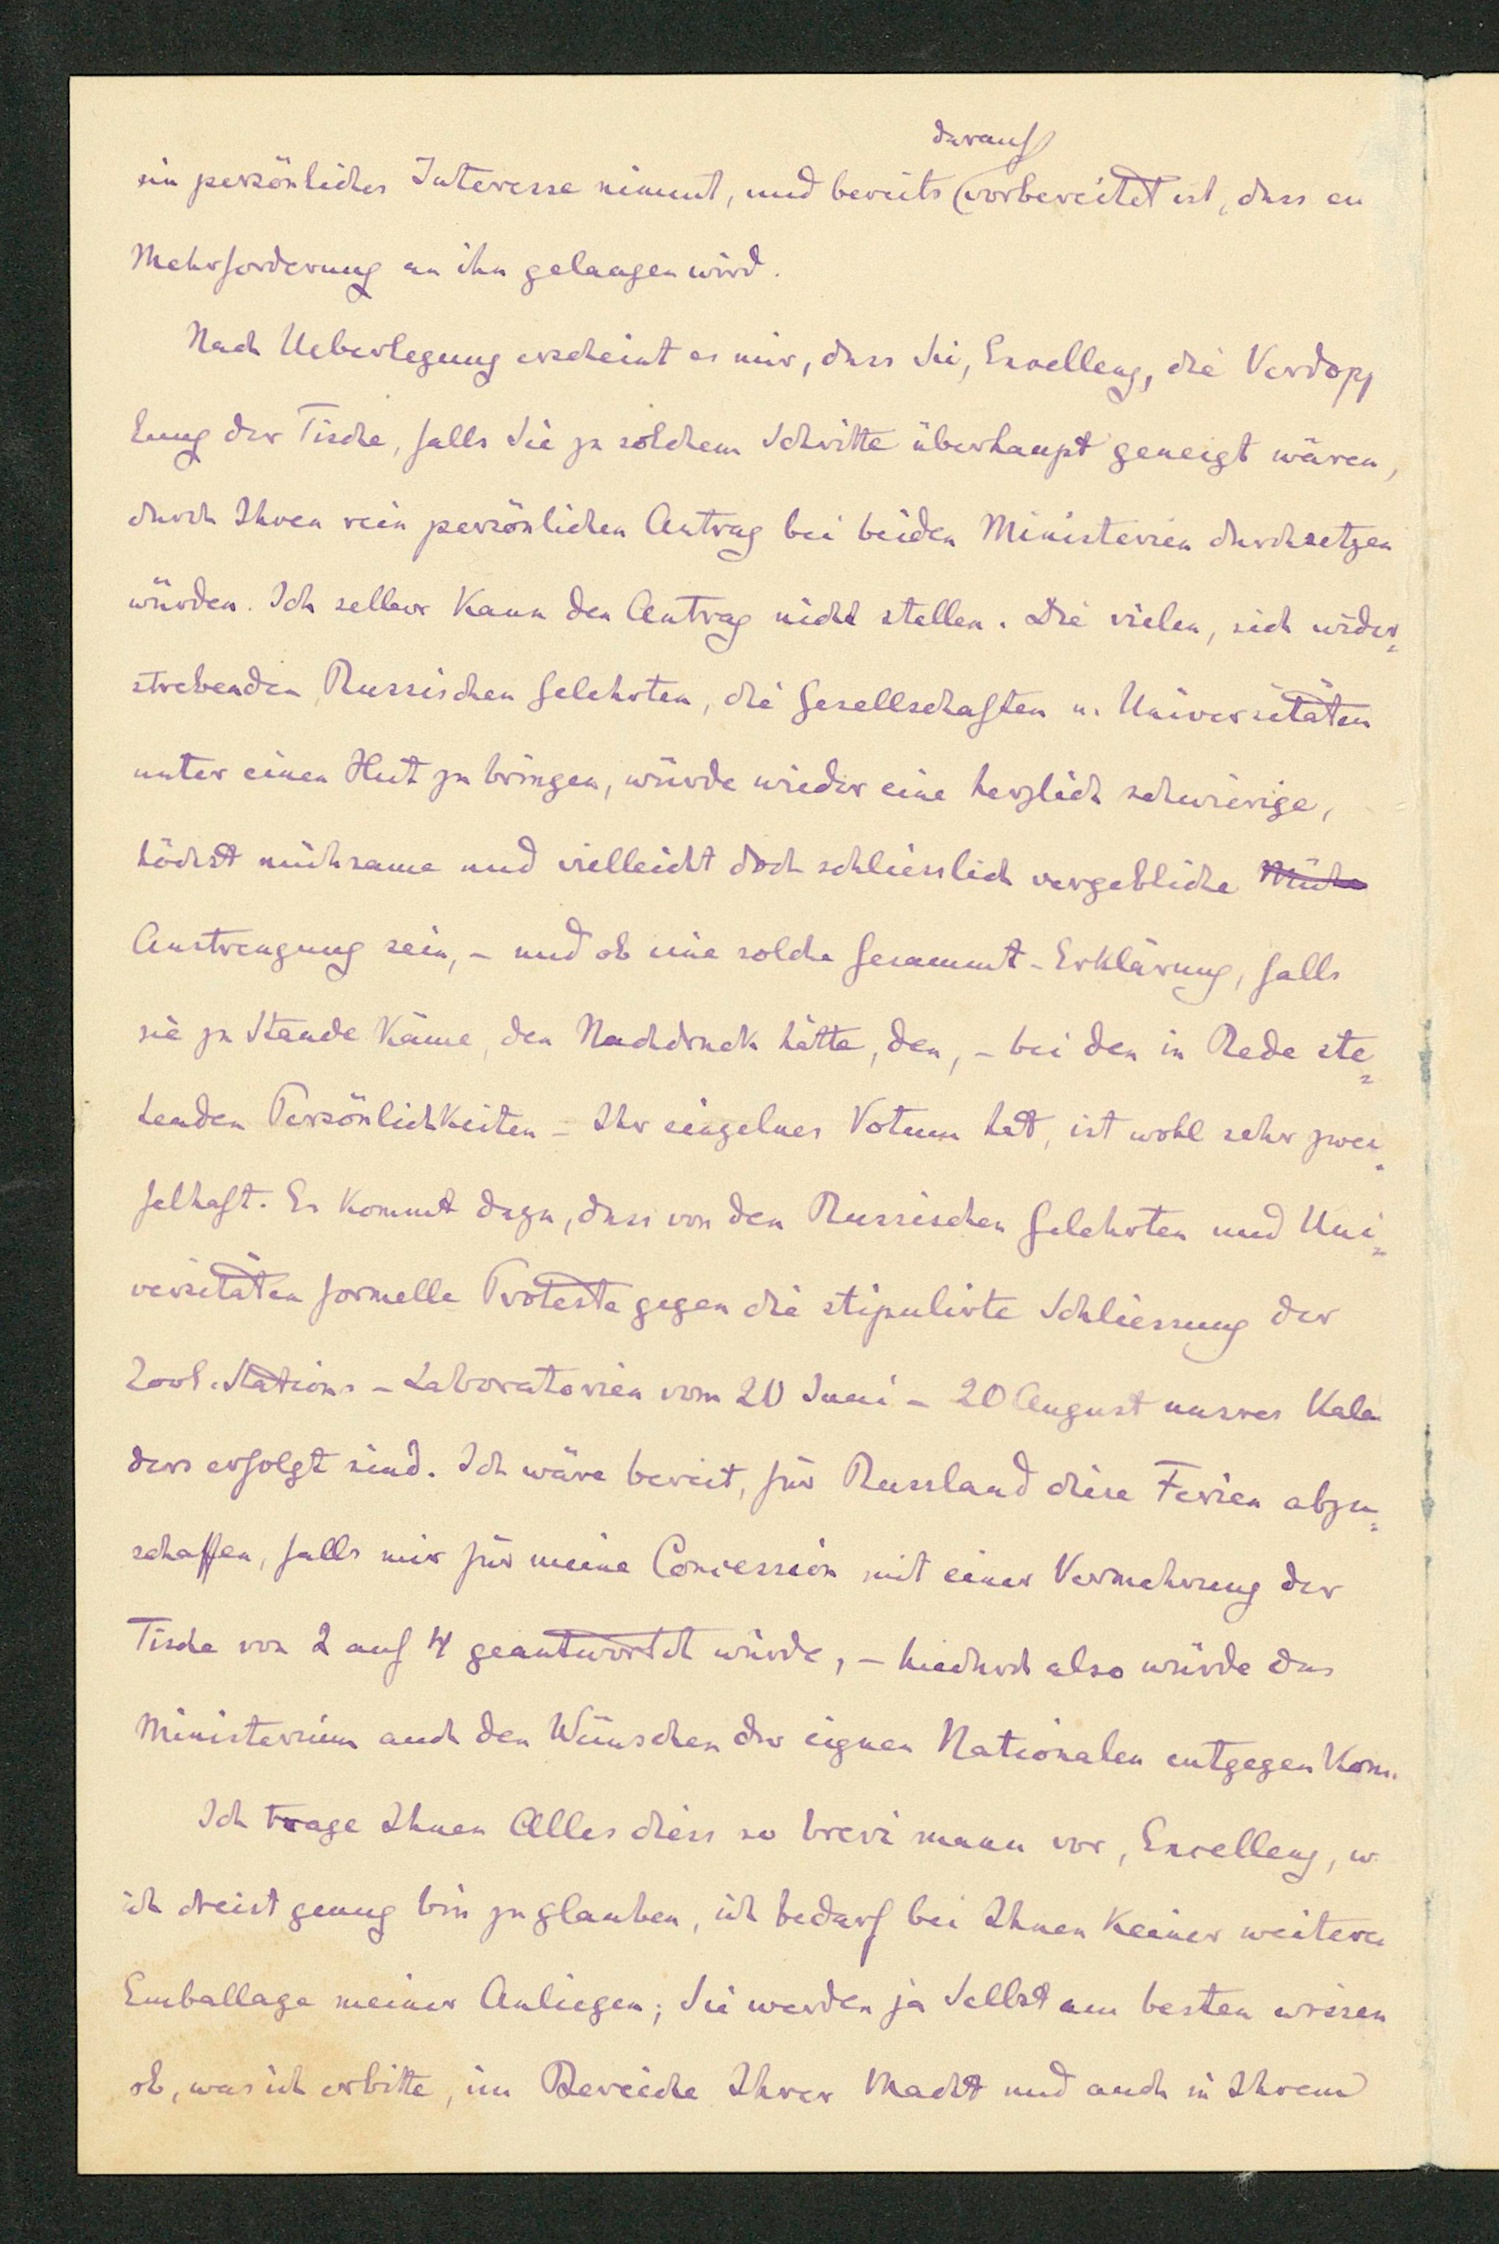 darauf
ein persönliches Interesse nimmt, und bereits (vorbereitet ist, dass ei
Mehrforderung an ihn gelangen wird.
Nach Ueberlegung erscheint es mir, dass Sie, Excellenz, die Verdopp
lung der Tische, falls Sie zu solchem Schritte überhaupt geneigt wären,
durch Ihren rein persönlichen Antrag bei beiden Ministerien durchsetzen
würden. Ich selber kann den Antrag nicht stellen. Die vielen, sich wider=
strebenden Russischen Gelehrten, die Gesellschaften u. Universitäten
unter einen Hut zu bringen, würde wieder eine herzlich schwierige,
höchst mühsame und vielleicht doch schliesslich vergebliche Mühe
Anstrengung sein, – und ob eine solche Gesammt-Erklärung, falls
sie zu Stande käme, den Nachdruck hätte, den, – bei den in Rede ste=
henden Persönlichkeiten – Ihr einzelnes Votum hat, ist wohl sehr zwei=
felhaft. Es kommt dazu, dass von den Russischen Gelehrten und Uni=
versitäten formelle Proteste gegen die stipulirte Schliessung der
Zool. Stations-Laboratorien vom 20 Juni – 20 August unsres Kalen
ders erfolgt sind. Ich wäre bereit, für Russland diese Ferien abzu=
schaffen, falls mir für meine Concession mit einer Vermehrung der
Tische von 2 auf 4 geantwortet würde, – hiedurch also würde das
Ministerium auch den Wünschen der eignen Nationalen entgegen kom.
Ich trage Ihnen Alles diess so brevi manu vor, Excellenz, w
ich dreist genug bin zu glauben, ich bedarf bei Ihnen keiner weiteren
Emballage meiner Anliegen; Sie werden ja Selbst am besten wissen
ob, was ich erbitte, im Bereiche Ihrer Macht und auch in Ihrem